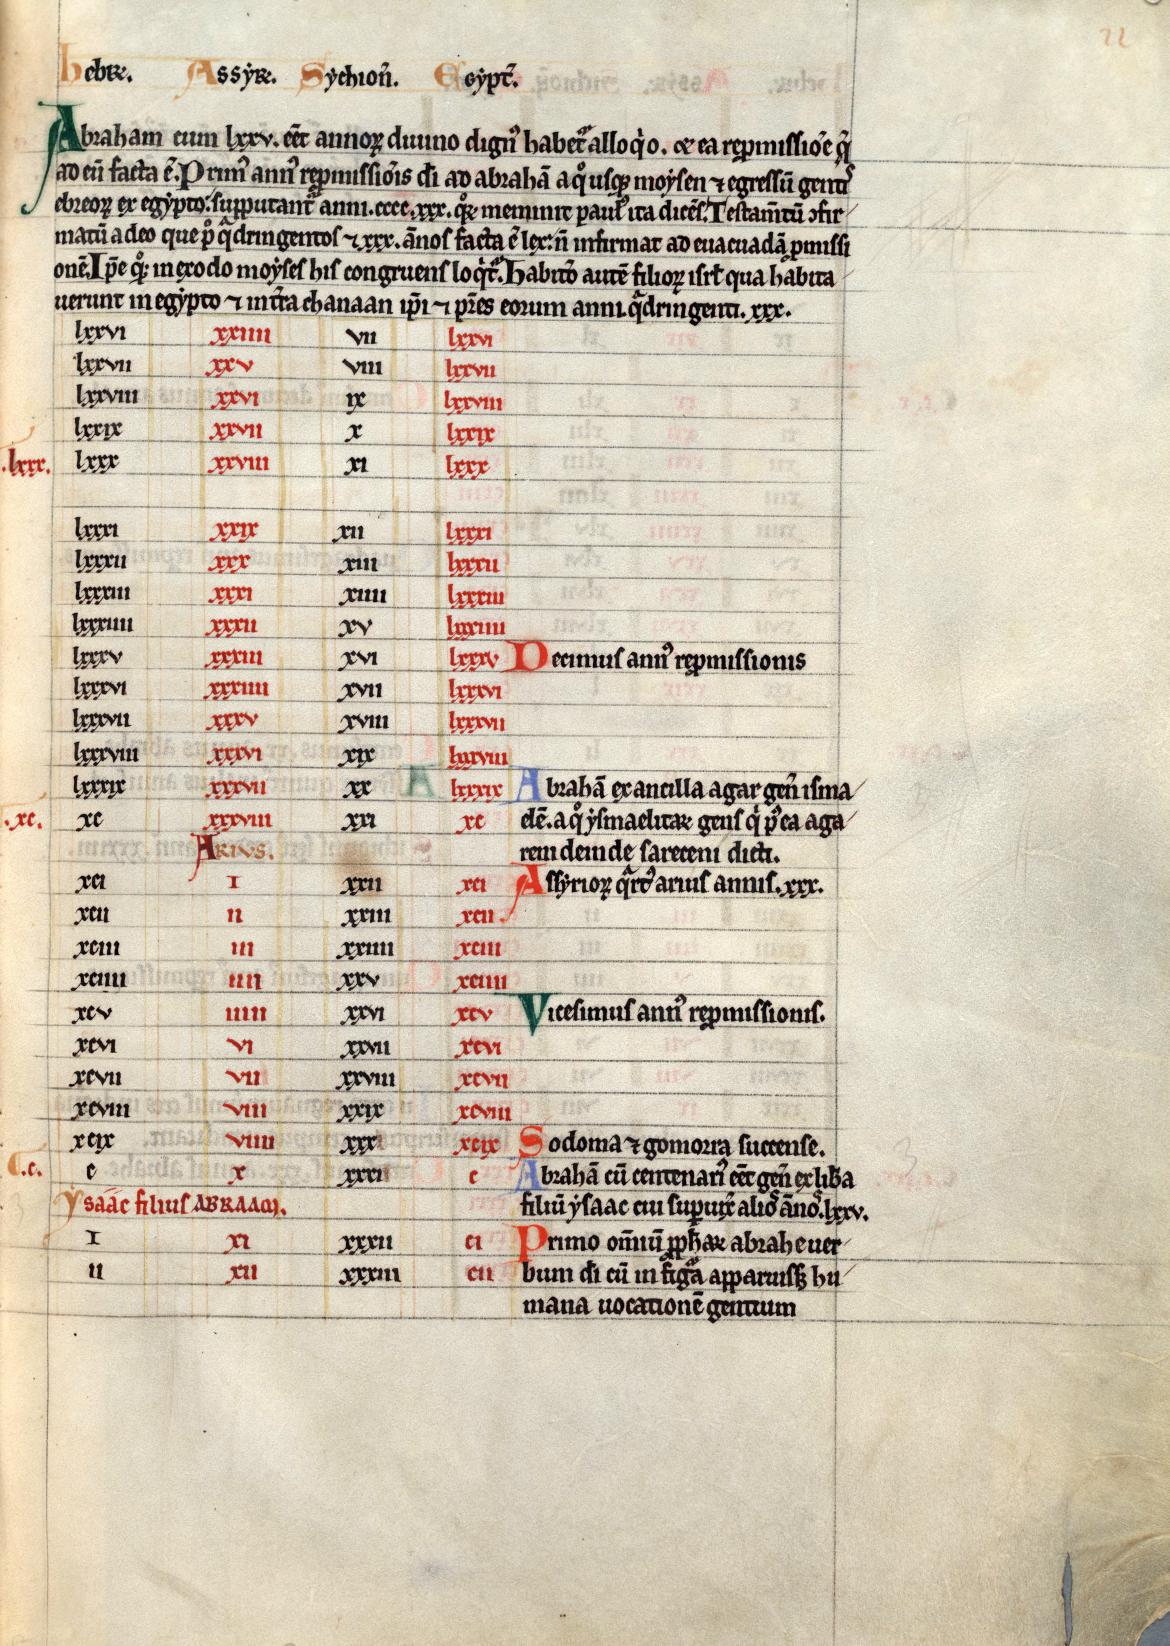 22
hebre. Assyre. Sychion̄. Egypt̄.
Abraham cum lxxv. eēt annoꝝ diuino dign᷒ habet᷑ alloq̊o. ⁊ ea rep̱missiōe q̄
ad eū facta ē. Prim᷒ ann᷒ rep̱missiōis dī ad abrahā a q̊ usq̨ moẏsen ⁊ egressū genti᷒
ebreoꝝ ex egẏpto: supputant᷑ anni. cccc.xxx. qd̄e meminit paul᷒ ita dicēs. Testam̄tū ↄfir
matū a deo que p᷒ q̄dringentos ⁊ xxx. ānos facta ē lex: n̄ infirmat ad euacuādā p̱missi
onē. Ip̄e qd̄e in exodo moẏses his congruens loq̄t᷑. Habit̄o autē filioꝝ isrl̄ qua habita
uerunt in egẏpto ⁊ in t̄ra chanaan ip̄i ⁊ p̄res eorum anni. q̄dringenti. xxx.
lxxvi xxiiii vii lxxvi
lxxvii xxv viii lxxvii
lxxviii xxvi ix lxxviii
lxxix xxvii x lxxix
.lxxx. lxxx xxviii xi lxxx
lxxxi xxix xii lxxxi
lxxxii xxx xiii lxxxii
lxxxiii xxxi xiiii lxxxiii
lxxxiiii xxxii xv lxxxiiii
lxxxv xxxiii xvi lxxxv Decimus ann᷒ rep̱missionis
lxxxvi xxxiiii xvii lxxxvi
lxxxvii xxxv xviii lxxxvii
lxxxviii xxxvi xix lxxxviii
lxxxix xxxvii xx lxxxix Abrahā ex ancilla agar gen̄ isma
.xc. xc xxxviii xxi xc elē. a q̊ ẏsmaelitae gens q̇ p᷒ea aga
Arius. reni deinde sareceni dicti.
xci i xxii xci Assẏrioꝝ q̄rt᷒ arius annis. xxx.
xcii ii xxiii xcii.
xciii iii xxiiii xciii
xciiii iiii xxv xciiii
xcv iiiii xxvi xcv Vicesimus ann᷒ rep̱missionis.
xcvi vi xxvii xcvi
xcvii vii xxviii xcvii
xcviii viii xxix xcviii
xcix viiii xxx xcix Sodoma ⁊ gomorra succense.
.c. c x xxxi c Abrahā cū centenari᷒ eēt gen̄ ex lib̄a
ẏsaāc filius ABRAAM. filiū ẏsaac cui sup̱uix̄ alio᷒ āno᷒. lxxv.
i xi xxxii ci Primo om̄iū pp̄h̄ae abrahe uer
ii xii xxxiii cii bum dī cū in fig̊a apparuiss; hu
mana uocationē gentium